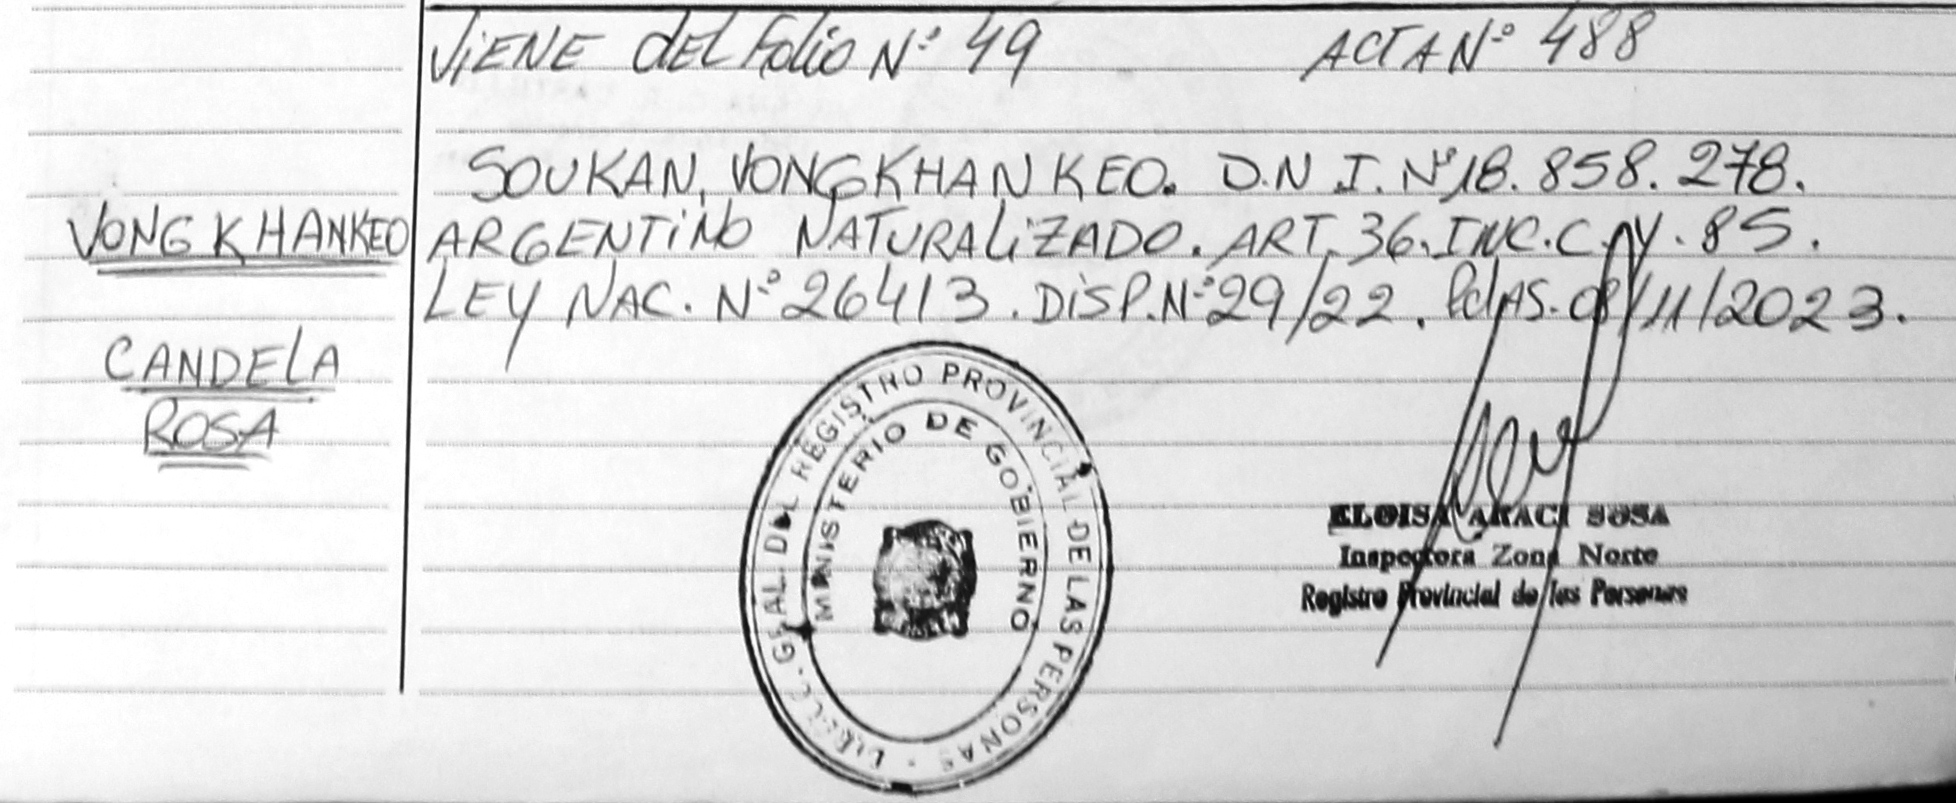 VIENE DEL FOLIO Nº 49 ACTA Nº 488
SOUKAN, VONGKHANKEO. D.N I. Nº 18. 858. 278.
VONGKHANKEO
ARGENTINO NATURALIZADO. ART. 36. INC. C. Y. 85.
LEY NAC. Nº 26413. DISP. Nº 29/22. PdAS. 08/11/2023.
CANDELA
ROSA
GRAL. DEL REGISTRO PROVINCIAL DE LAS PERSONAS
MINISTERIO DE GOBIERNO
ELOISA ARACI SOSA
Inspectora Zona Norte
Registro Provincial de las Personas